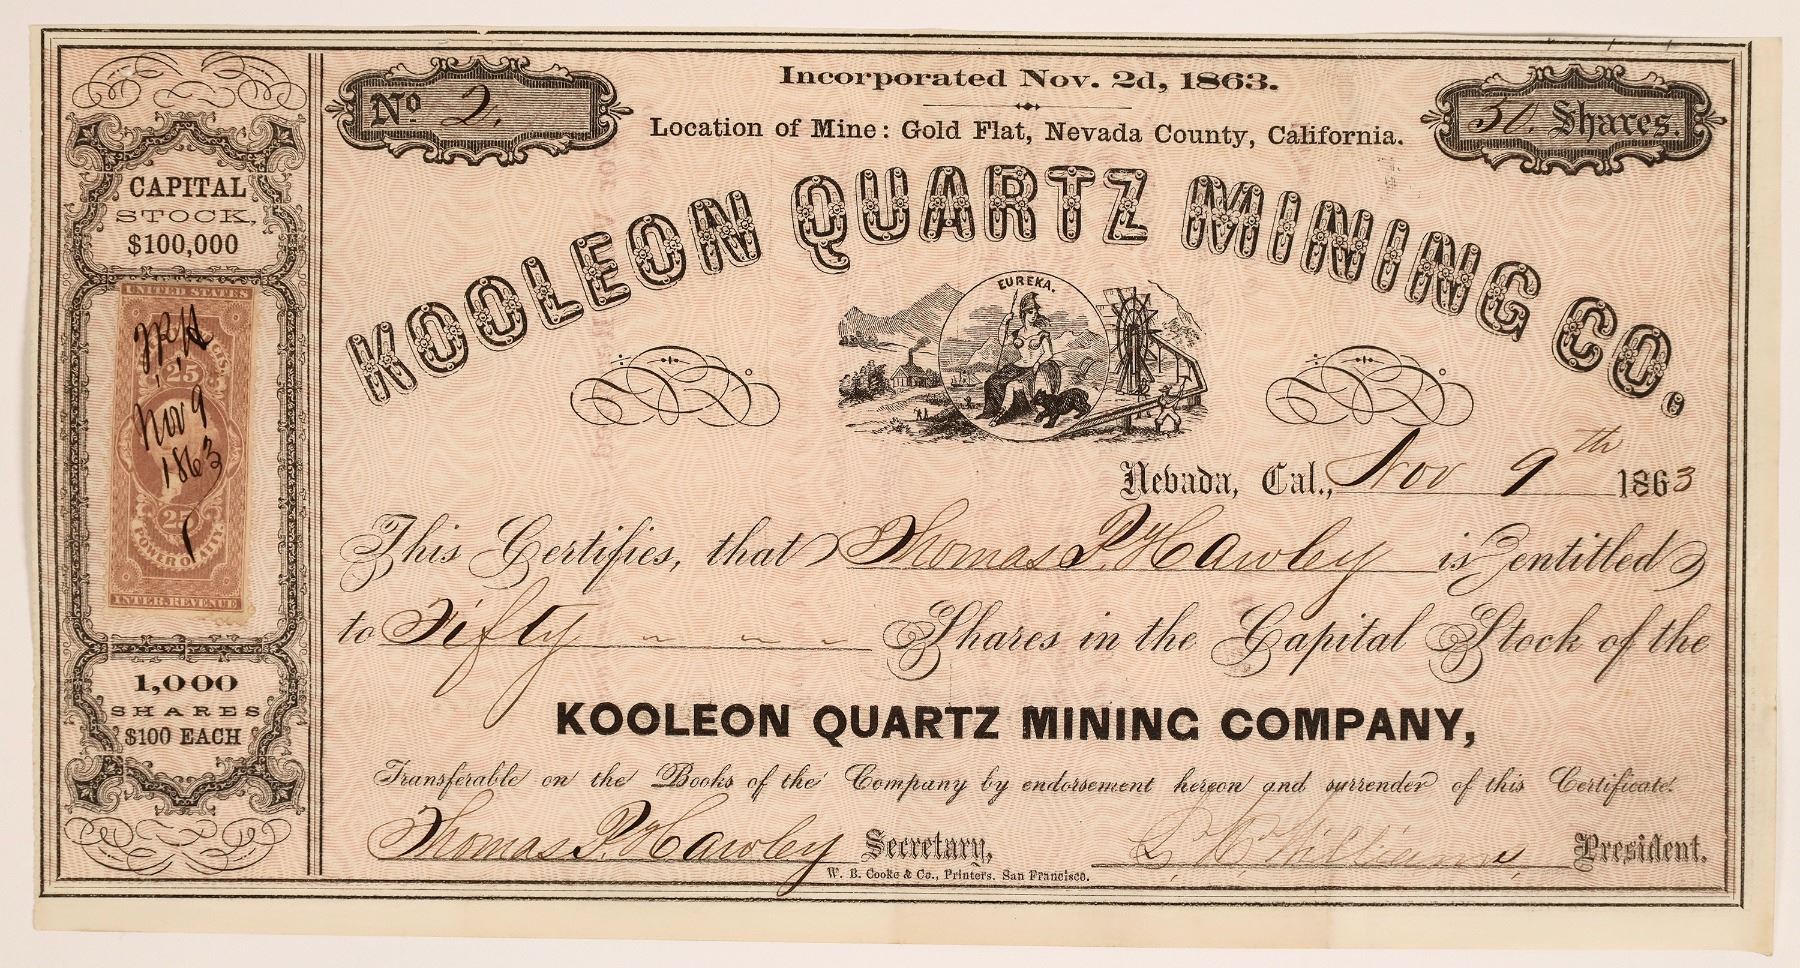 Incorporated Nov. 2d, 1863.
No 2.
50. Shares.
Location of Mine: Gold Flat, Nevada County, California.
KOOLEON QUARTZ MINING CO.
CAPITAL
STOCK,
$100,000
EUREKA.
UNITED STATES
25
Nov 9
1863
25
POWER OF ATTY
INTER. REVENUE
1,000
SHARES
$100 EACH
Nevada, Cal., Nov 9th 1863
This Certifies, that Thomas P. Hawley is entitled
to Fifty Shares in the Capital Stock of the
KOOLEON QUARTZ MINING COMPANY,
Transferable on the Books of the Company by endorsement hereon and surrender of this Certificate.
Thomas P. Hawley Secretary, Williams President.
W. B. Cooke & Co., Printers. San Francisco.